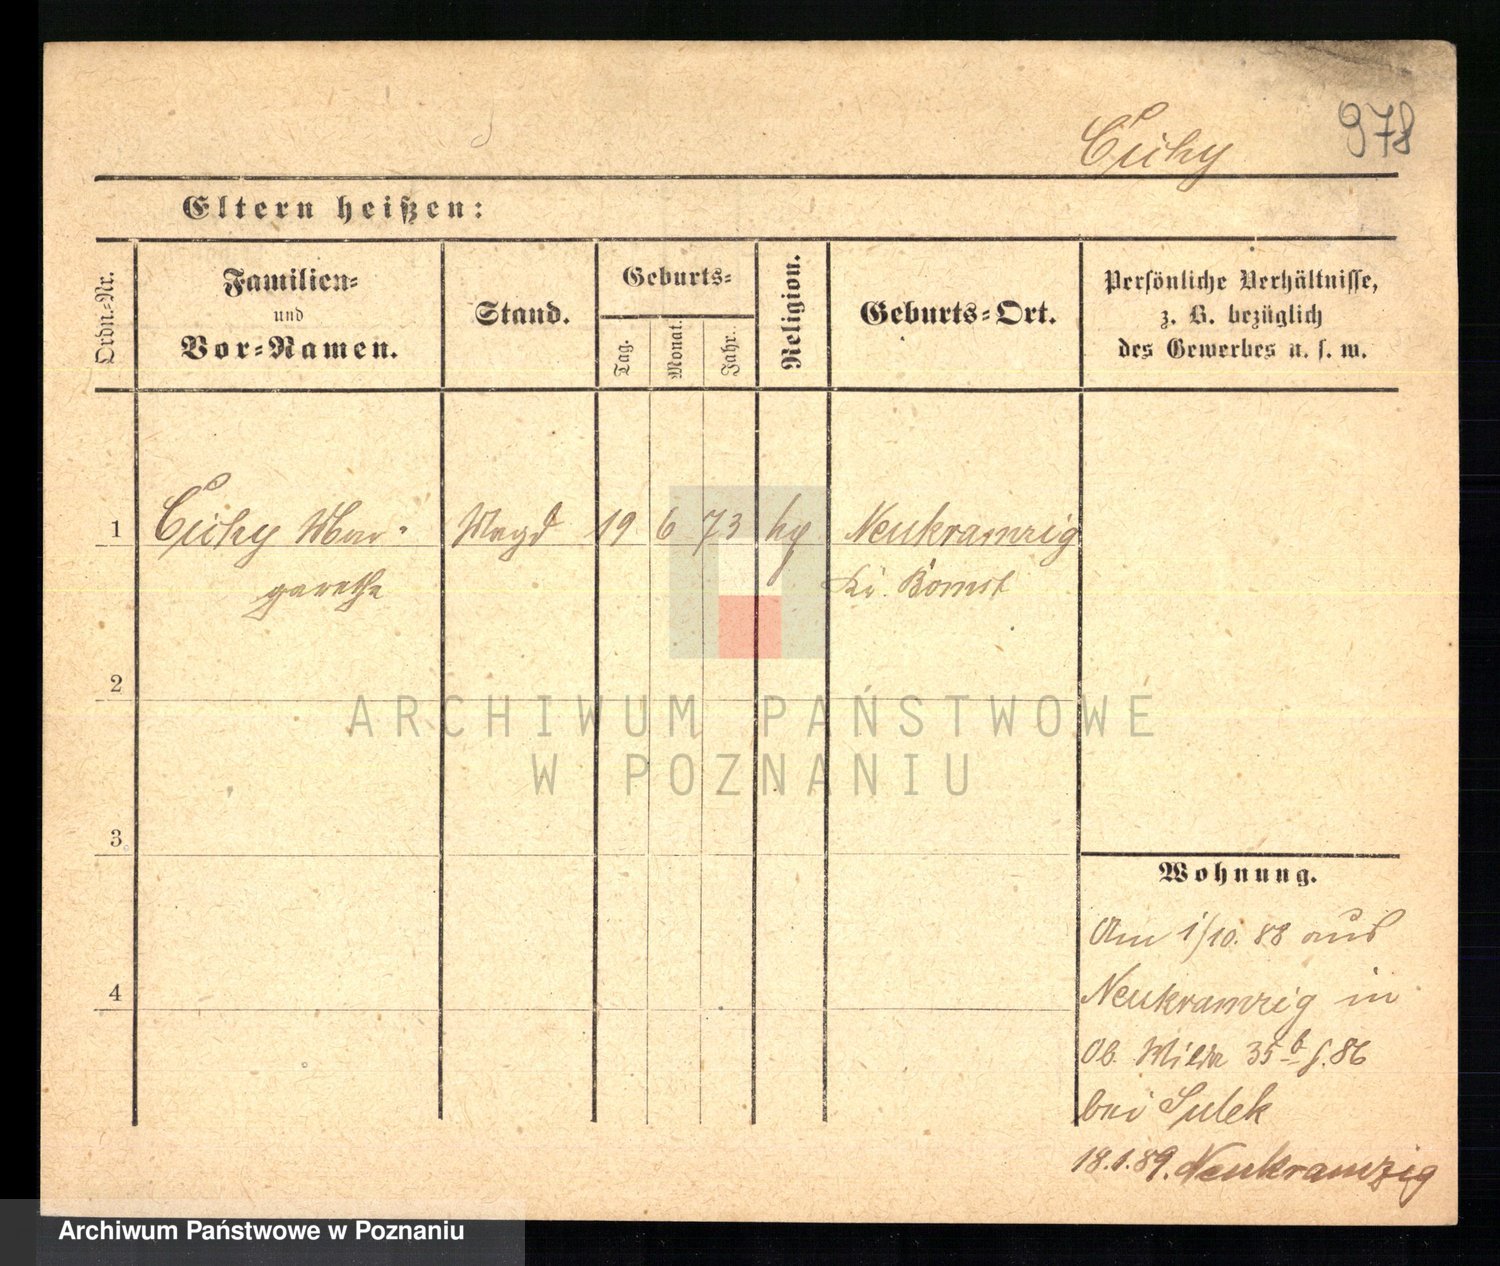 Cichy 978
Eltern heißen:
Ordn.-Nr.
Familien-
und
Vor-Namen.
Stand.
Geburts-
Tag.
Monat.
Jahr.
Religion.
Geburts-Ort.
Persönliche Verhältnisse,
z. B. bezüglich
des Gewerbes u. s. w.
1 Cichy Mar- Magd 19 6 73 Neukramzig
garetha Kr. Bomst
2
3
4
ARCHIWUM PAŃSTWOWE
W POZNANIU
Wohnung.
Am 1/10. 88 aus
Neukramzig in
Ob. Wilda 35 86
bei Sulek
18.1.89. Neukramzig
Archiwum Państwowe w Poznaniu